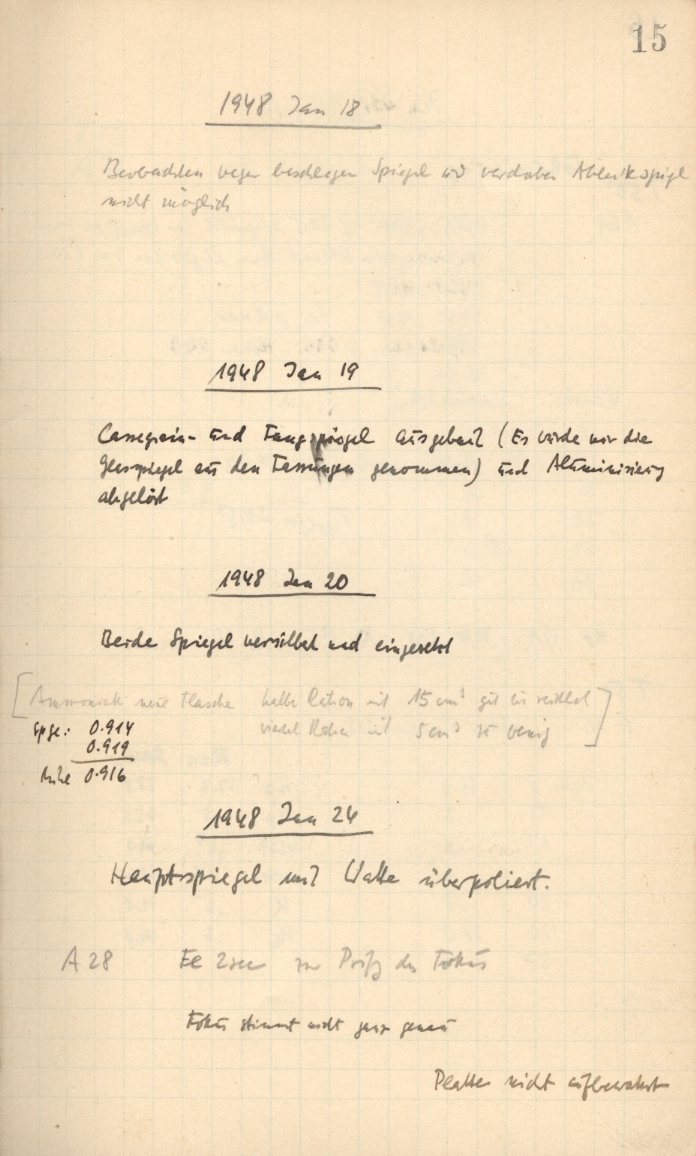 15
1948 Jan 18
Beobachten wegen beschlagen Spiegel und verdorben Ablenkspiegel
nicht möglich
1948 Jan 19
Cassegrain- und Fangspiegel ausgebaut (Es wurde nur die
Glasspiegel aus den Fassungen genommen) und Aluminisierung
abgelöst
1948 Jan 20
Beide Spiegel versilbert und eingesetzt
[Ammoniak neue Flasche halbe Ration mit 15 cm³ gut bis reichlich
mit 5 cm³ zu wenig]
Spge.: 0.914
0.919
0.916
1948 Jan 24
Hauptspiegel mit Watte überpoliert.
A 28 Ee 2 sec zur Prüfg des Fokus
Fokus stimmt nicht ganz genau
Platte nicht aufbewahrt